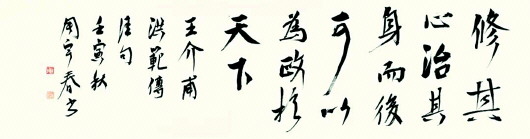 修其
心治其
身而後
可以
為政於
天下
王介甫
洪範傳
佳句
壬寅秋